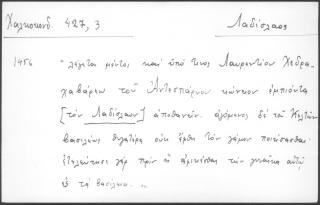 Χαλκοκονδ. 427, 3 Λαδίσλαος
1456 "λέγεται μέντοι καὶ ὑπό τινος Λαυρεντίου Χεδρα-
χαβάρεω τοῦ κώνειον ἐμπιόντα
[τὸν Λαδίσλαον] ἀποθανεῖν. ἀγόμενος δὲ τοῦ Κελτῶν
βασιλέως θυγατέρα οὐκ ἔφθη τὸν γάμον ποιήσασθαι.
ἐτελεύτησε γὰρ πρὶν ἢ ἀφικέσθαι τὴν γυναῖκα αὐτῷ
ἐς τὰ βασίλεια. „